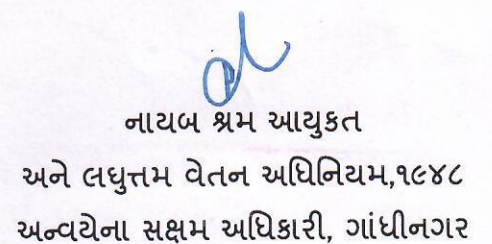 નાયબ શ્રમ આયુકત
અને લઘુત્તમ વેતન અધિનિયમ,૧૯૪૮
અન્વયેના સક્ષમ અધિકારી, ગાંધીનગર